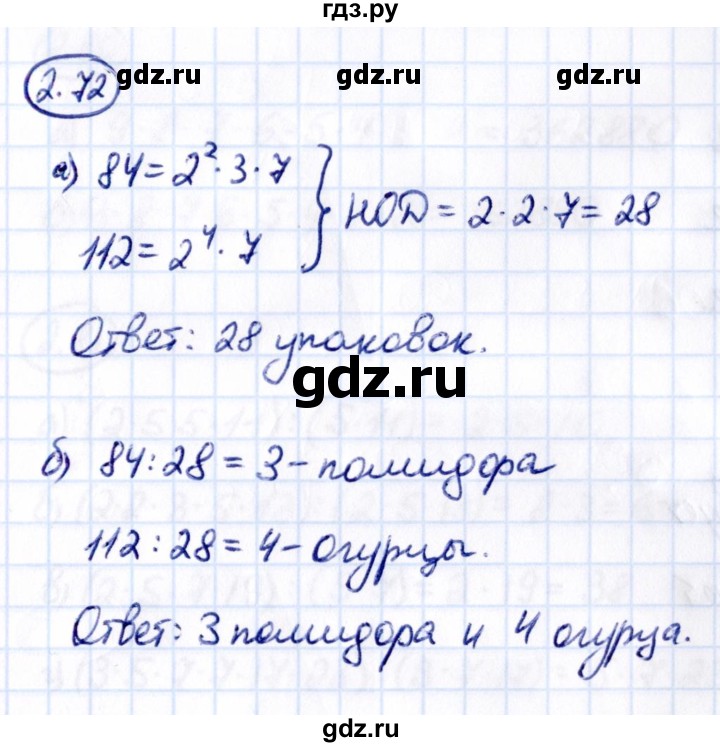 гдз.ру
gdz.ru gdz.ru
2.72
а) 84 = 2²·3·7
112 = 2⁴·7 } НОД = 2·2·7 = 28
Ответ: 28 упаковок.
gdz.ru
б) 84:28 = 3 - помидора
112:28 = 4 - огурцы.
gdz.ru gdz.ru
Ответ: 3 помидора и 4 огурца.
gdz.ru